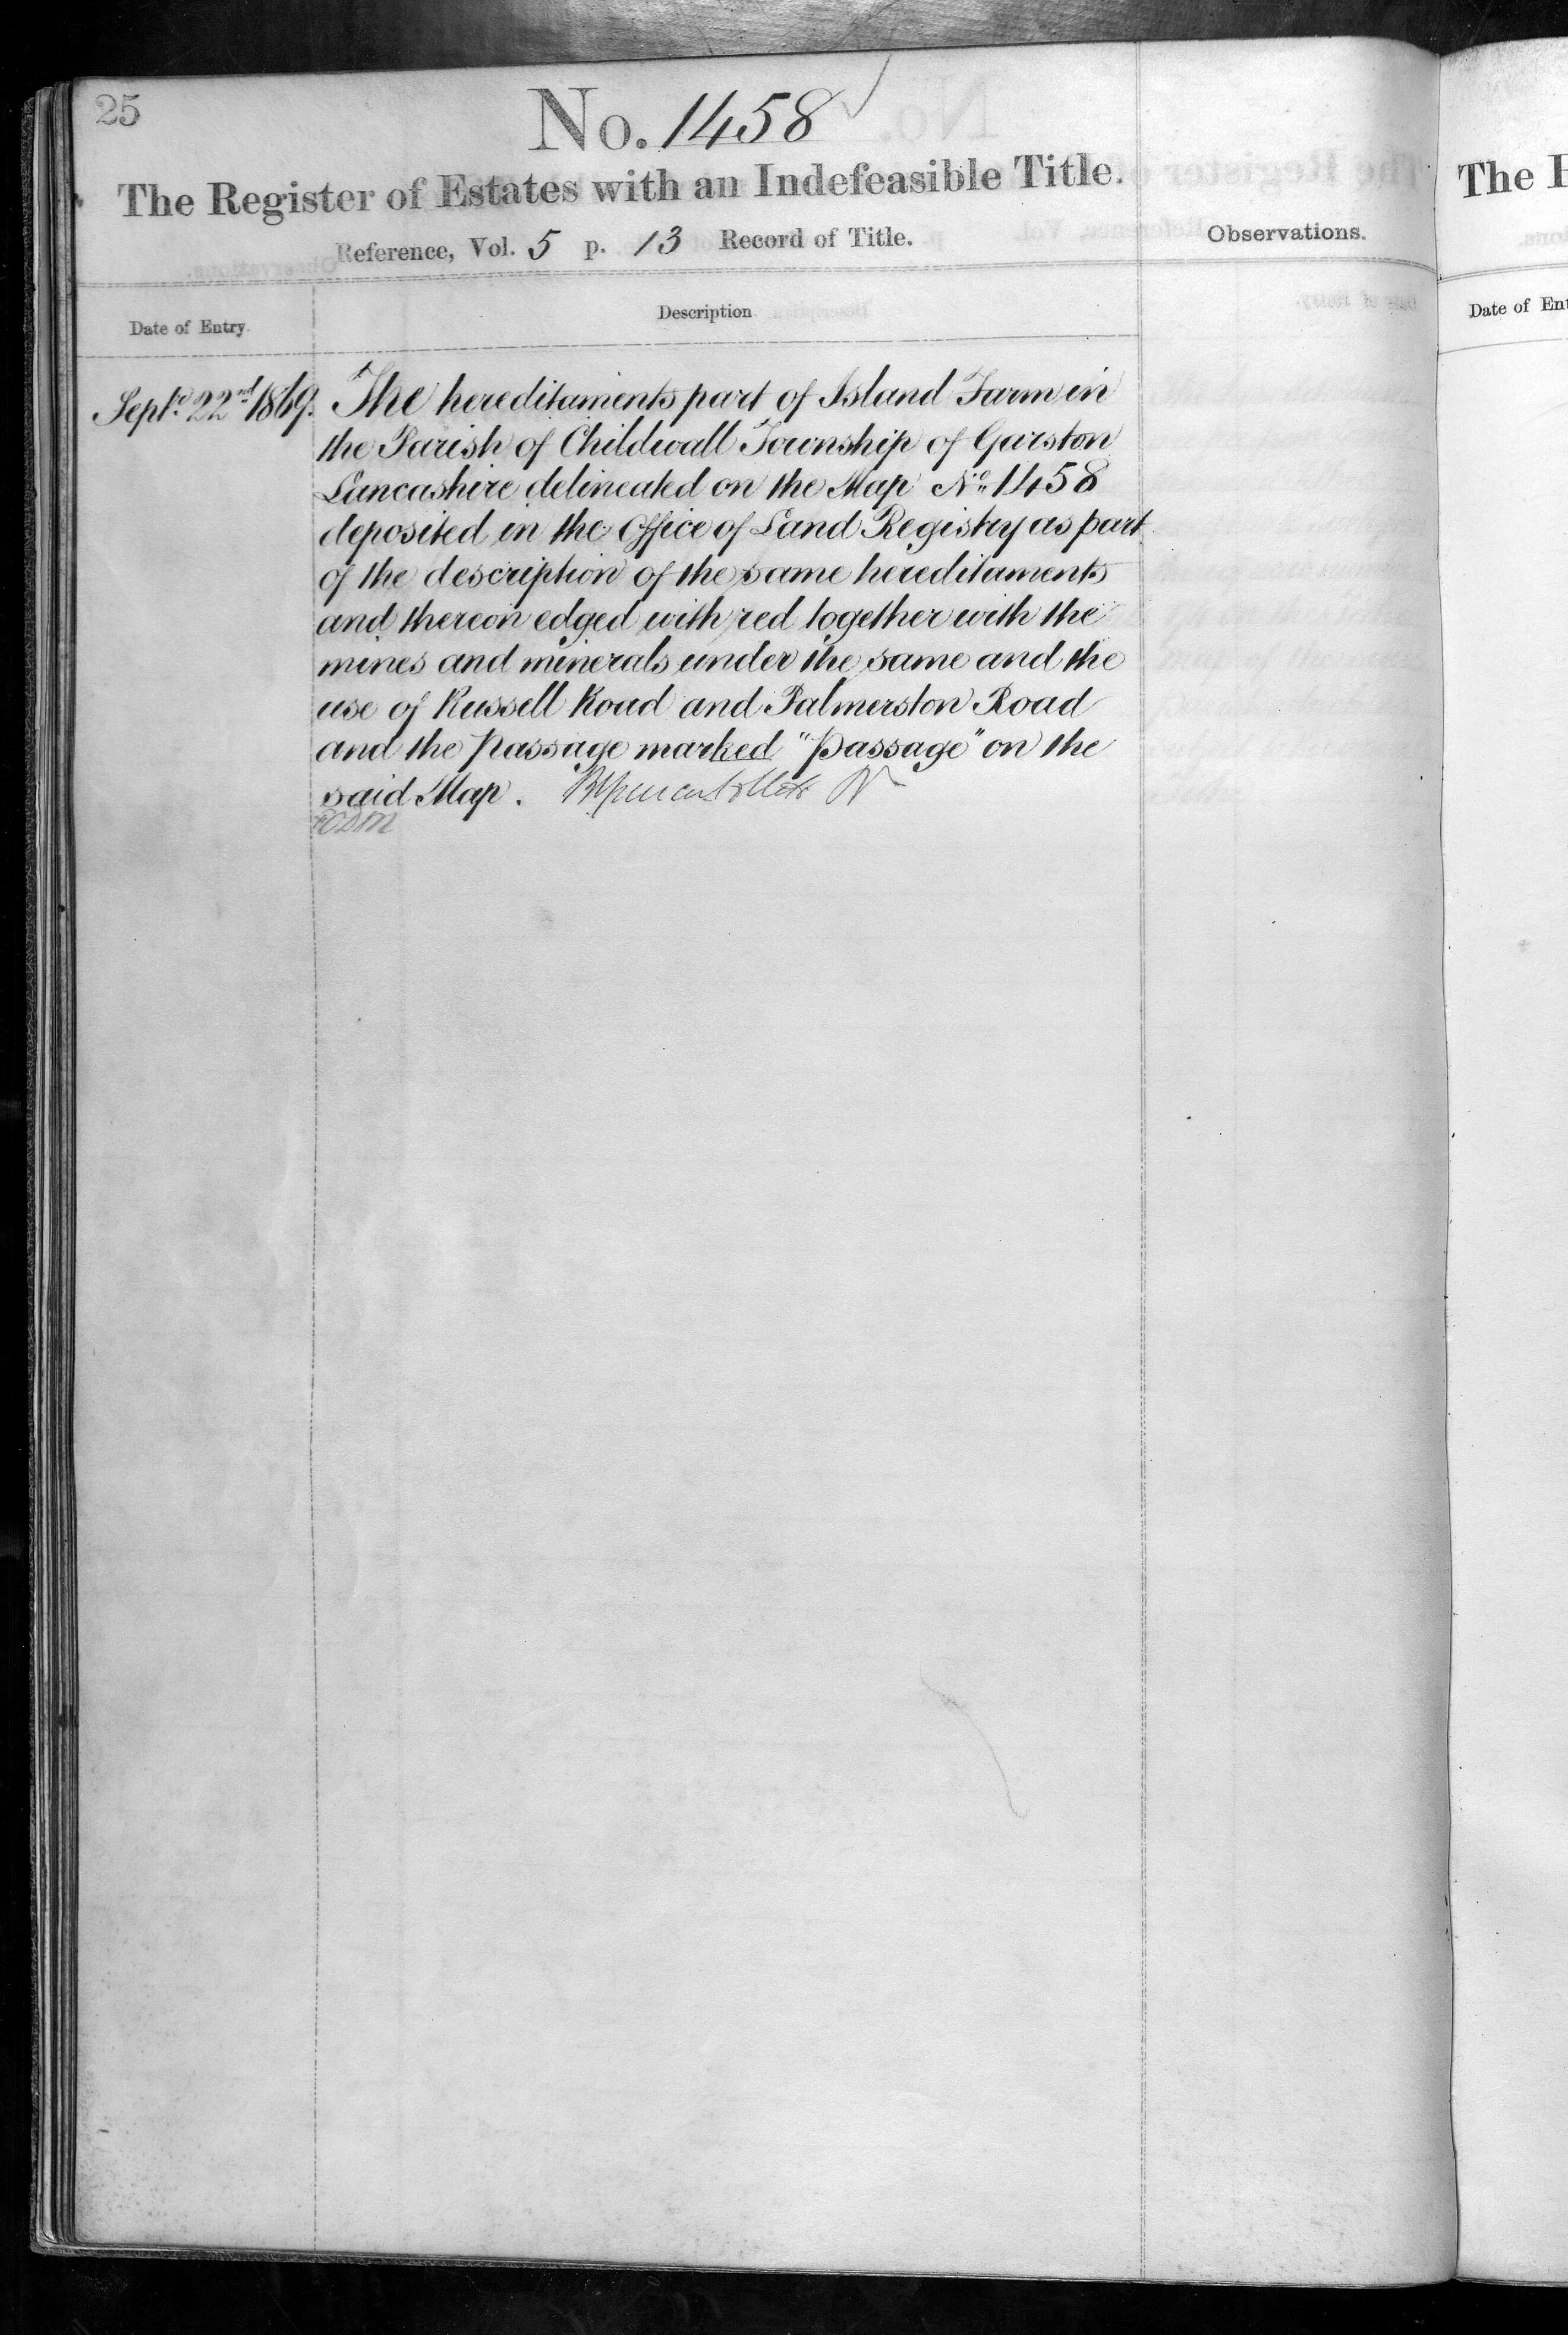 25
No. 1458
The Register of Estates with an Indefeasible Title.
Reference, Vol. 5 p. 13 Record of Title.
Observations.
Date of Entry.
Description
Sept.r 22nd 1869.
The hereditaments part of Island Farm in
the Parish of Childwall Township of Garston
Lancashire delineated on the Map No. 1458
deposited in the Office of Land Registry as part
of the description of the same hereditaments
and thereon edged with red together with the
mines and minerals under the same and the
use of Russell Road and Palmerston Road
and the Passage marked "Passage" on the
said Map.
The
Date of